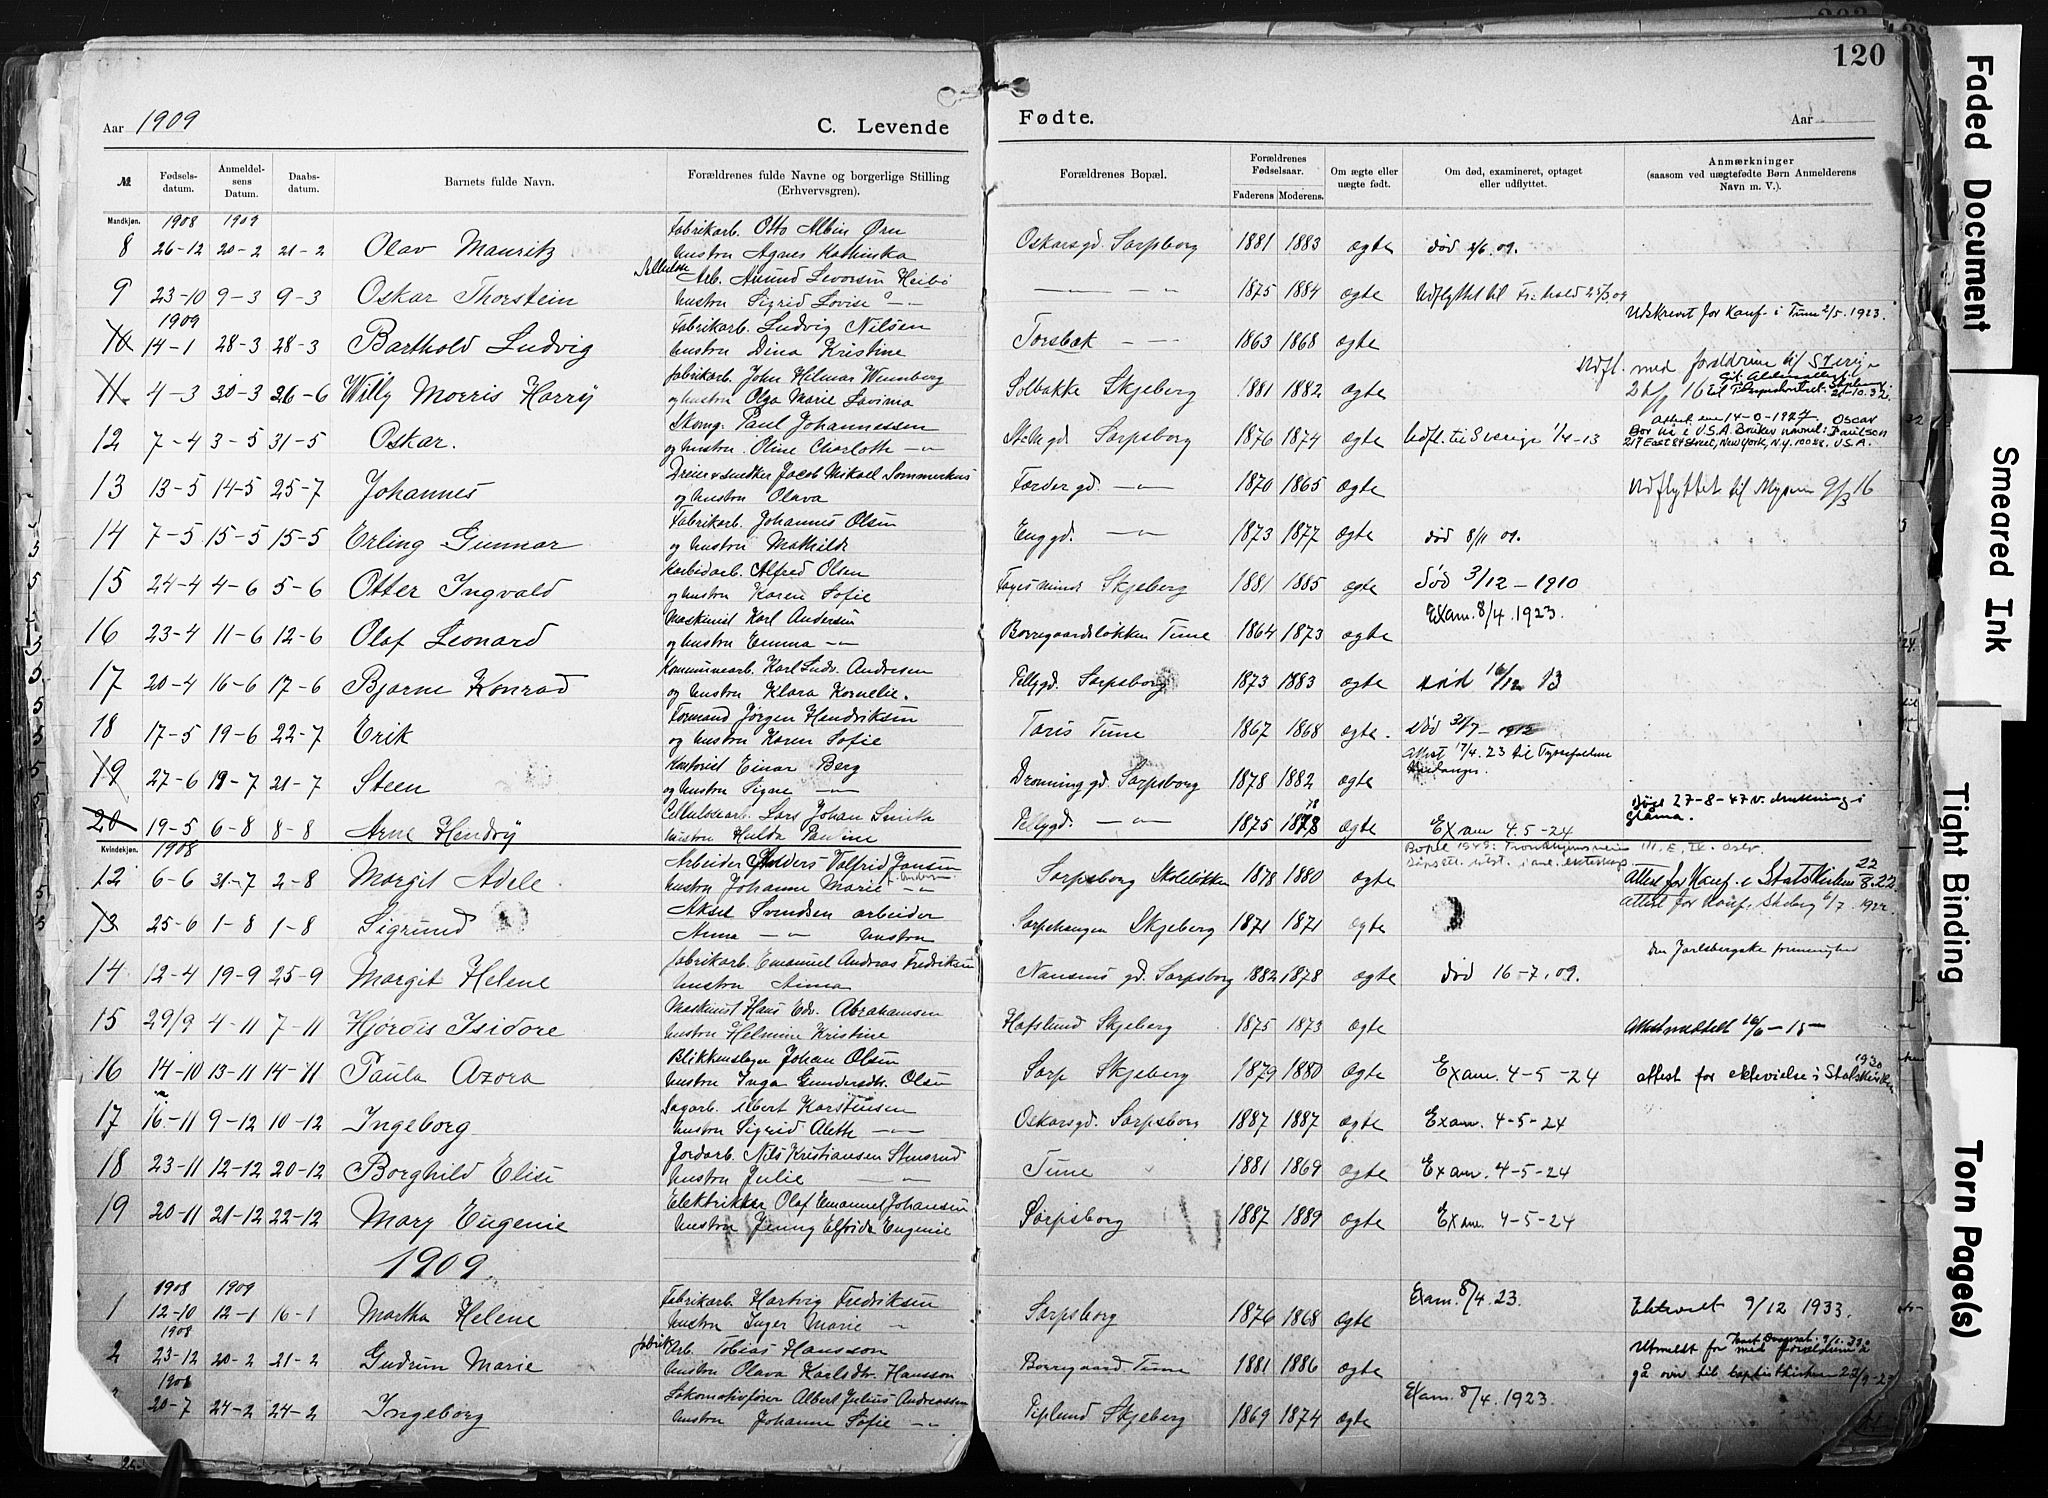 120
Aar 1909 C. Levende Fødte. Aar
№ Fødselsdatum. Anmeldelsens Datum. Daabsdatum. Barnets fulde Navn. Forældrenes fulde Navne og borgerlige Stilling (Erhvervsgren). Forældrenes Bopæl. Forældrenes Fødselsaar. Faderens Moderens. Om ægte eller uægte født. Om død, examineret, optaget eller udflyttet. Anmærkninger (saasom ved uægtefødte Børn Anmelderens Navn m. V.).
Mandkjøn. 1908 1909
8 26-12 20-2 21-2 Olav Mauritz Fabrikarb. Otto Albin Ørn
hustru Agnes Kathinka Oskarsgd. Sarpsborg 1881 1883 ægte død 2/6 09.
9 23-10 9-3 9-3 Oskar Thorstein Cellulose Arb. Amund Levorsen Heibø
hustru Sigrid Lovise — " — 1875 1884 ægte Udflyttet til Fr:hald 25/3 09
1909
10 14-1 28-3 28-3 Barthold Ludvig Fabrikarb. Ludvig Nilsen
hustru Dina Kristine Torsbak — " — 1863 1868 ægte Udskrevet for Konf. i Tune 2/5. 1923.
11 4-3 30-3 26-6 Willy Morris Harry fabrikarb. John Hilmar Wennberg
og hustru Olga Marie Lavima Solbakke Skjeberg 1881 1882 ægte Udfl. med foreldrene til Sverige
12 7-4 3-5 31-5 Oskar. Skomg. Paul Johannessen
og hustru Oline Charlotte — " — Sarpsborg 1876 1874 ægte Udfl. til Sverige 1/4-13
Bor nå i U.S.A. Bruker navnet: Oscar Paulson
217 East 84 Street, New York, N.Y. 10028. U.S.A.
13 13-5 14-5 25-7 Johannes Dreier & snedker Jacob Mikael Sommerhus
og hustru Olava Færder gd. — " — 1870 1865 ægte Udflyttet til Mysen 9/3 16
14 7-5 15-5 15-5 Erling Gunnar Fabrikarb. Johannes Olsen
og hustru Mathilde Enggd. — " — 1873 1877 ægte død 8/11 09.
15 24-4 4-6 5-6 Otter Ingvald Karbidarb. Alfred Olsen
og hustru Karen Sofie Skjeberg 1881 1885 ægte død 3/12 - 1910
16 23-4 11-6 12-6 Olaf Leonard Maskinist Karl Andersen
og hustru Emma — " — Borregaardsløkken Tune 1864 1873 ægte Exam. 8/4. 1923.
17 20-4 16-6 17-6 Bjarne Konrad Kommunearb. Karl Ludv. Andresen
og hustru Klara Kornelie. Pellygd. Sarpsborg 1873 1883 ægte død 16/12 13
18 17-5 19-6 22-7 Erik Formand Jørgen Hendriksen
og hustru Karen Sofie Taris Tune 1867 1868 ægte. død 31/7 - 1912
19 27-6 19-7 21-7 Steen Kontorist Einar Berg
og hustru Signe — " — Dronning gd. Sarpsborg 1878 1882 ægte Attest 17/4. 23 til Tyssedalen Hardanger.
20 19-5 6-8 8-8 Arne Hendry Cellulosearb. Lars Johan Smith
hustru Hulda Pauline Pellygd. — " — 1875 1878 78 ægte Exam 4-5-24 døde 27-8-47 v. drukning i Glåma.
Kvindekjøn. 1908
12 6-6 31-7 2-8 Margit Adele Arbeider Anders Valfrid Jansen
hustru Johanne Marie — " — Sarpsborg Skoleløkken 1878 1880 ægte Attest for Konf. i Statskirken 22/8. 22
13 25-6 1-8 1-8 Sigrund Aksel Svendsen arbeider
Anna — " — hustru Sarpehaugen Skjeberg 1871 1871 ægte Attest for Konf. Skeberg 6/7. 1922.
14 12-4 19-9 25-9 Margit Helene fabrikarb. Emanuel Andreas Fredriksen
hustru Anna Nansens gd. Sarpsborg 1882 1878 ægte død 16-7. 09. den Jarlsbergske frimenighed
15 29/9 4-11 7-11 Hjørdis Isidore Maskinist Hans Edv. Abrahamsen
hustru Helmine Kristine Hafslund Skjeberg 1875 1873 ægte Attest meddelt 10/6-15
16 14-10 13-11 14-11 Paula Azora Blikkenslager Johan Olsen
hustru Inga Gundersdtr. Olsen Sarp Skjeberg 1879 1880 ægte Exam. 4-5-24 attest for ektevielse i Statskirken 1930
17 16-11 9-12 10-12 Ingeborg Sagarb. Albert Karstensen
hustru Sigrid Aleth — " — Oskarsgd. Sarpsborg 1887 1887 ægte Exam. 4-5-24
18 23-11 12-12 20-12 Borghild Elise Jordarb. Nils Kristiansen Stensrud
hustru Julie — " — Tune 1881 1869 ægte Exam. 4-5-24
19 20-11 21-12 22-12 Mary Eugenie Elektrikker Olaf Emanuel Johansen
hustru Jenny Elfrida Eugenie Sarpsborg 1887 1889 ægte Exam. 4-5-24
1909.
1908 1909
1 12-10 12-1 16-1 Martha Helene Fabrikarb. Hartvig Fredriksen
hustru Inger Marie — " — Sarpsborg 1876 1868 ægte Exam. 8/4. 23. Ekteviet 9/12 1933.
1908
2 23-12 20-2 21-2 Gudrun Marie fabrik Arb. Tobias Hansson
hustru Olava Karlsdtr. Hansson Borregaard Tune 1881 1886 ægte Utmeldt for med forældrene å
gå over til baptistkirken 23/9-23
1908
20-7 24-2 24-2 Ingeborg Lokomotivfører Albert Julius Andreassen
hustru Johanne Sofie — " — Piplund Skjeberg 1869 1874 ægte Exam. 8/4. 1923
Faded Document
Smeared Ink
Tight Binding
Torn Page(s)